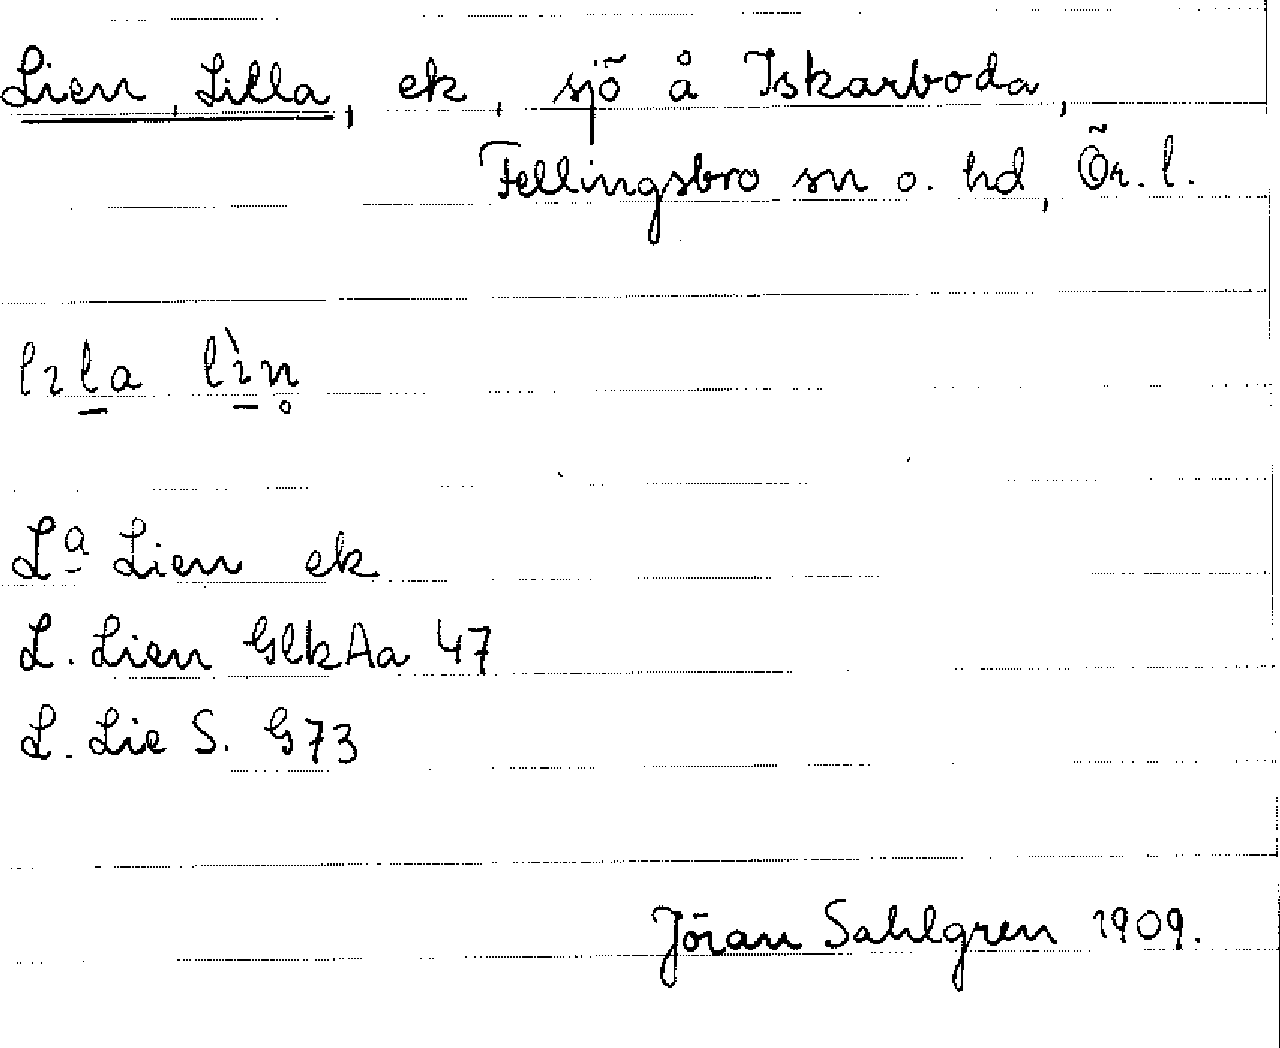 Lien, Lilla, ek, sjö å Iskarboda,
Fellingsbro sn o. hd, Ör. l.
lɪla lɪ̀n̥
Lª Lien ek
L. Lien GlkAa 47
L. Lie S. G73
Jöran Sahlgren 1909.